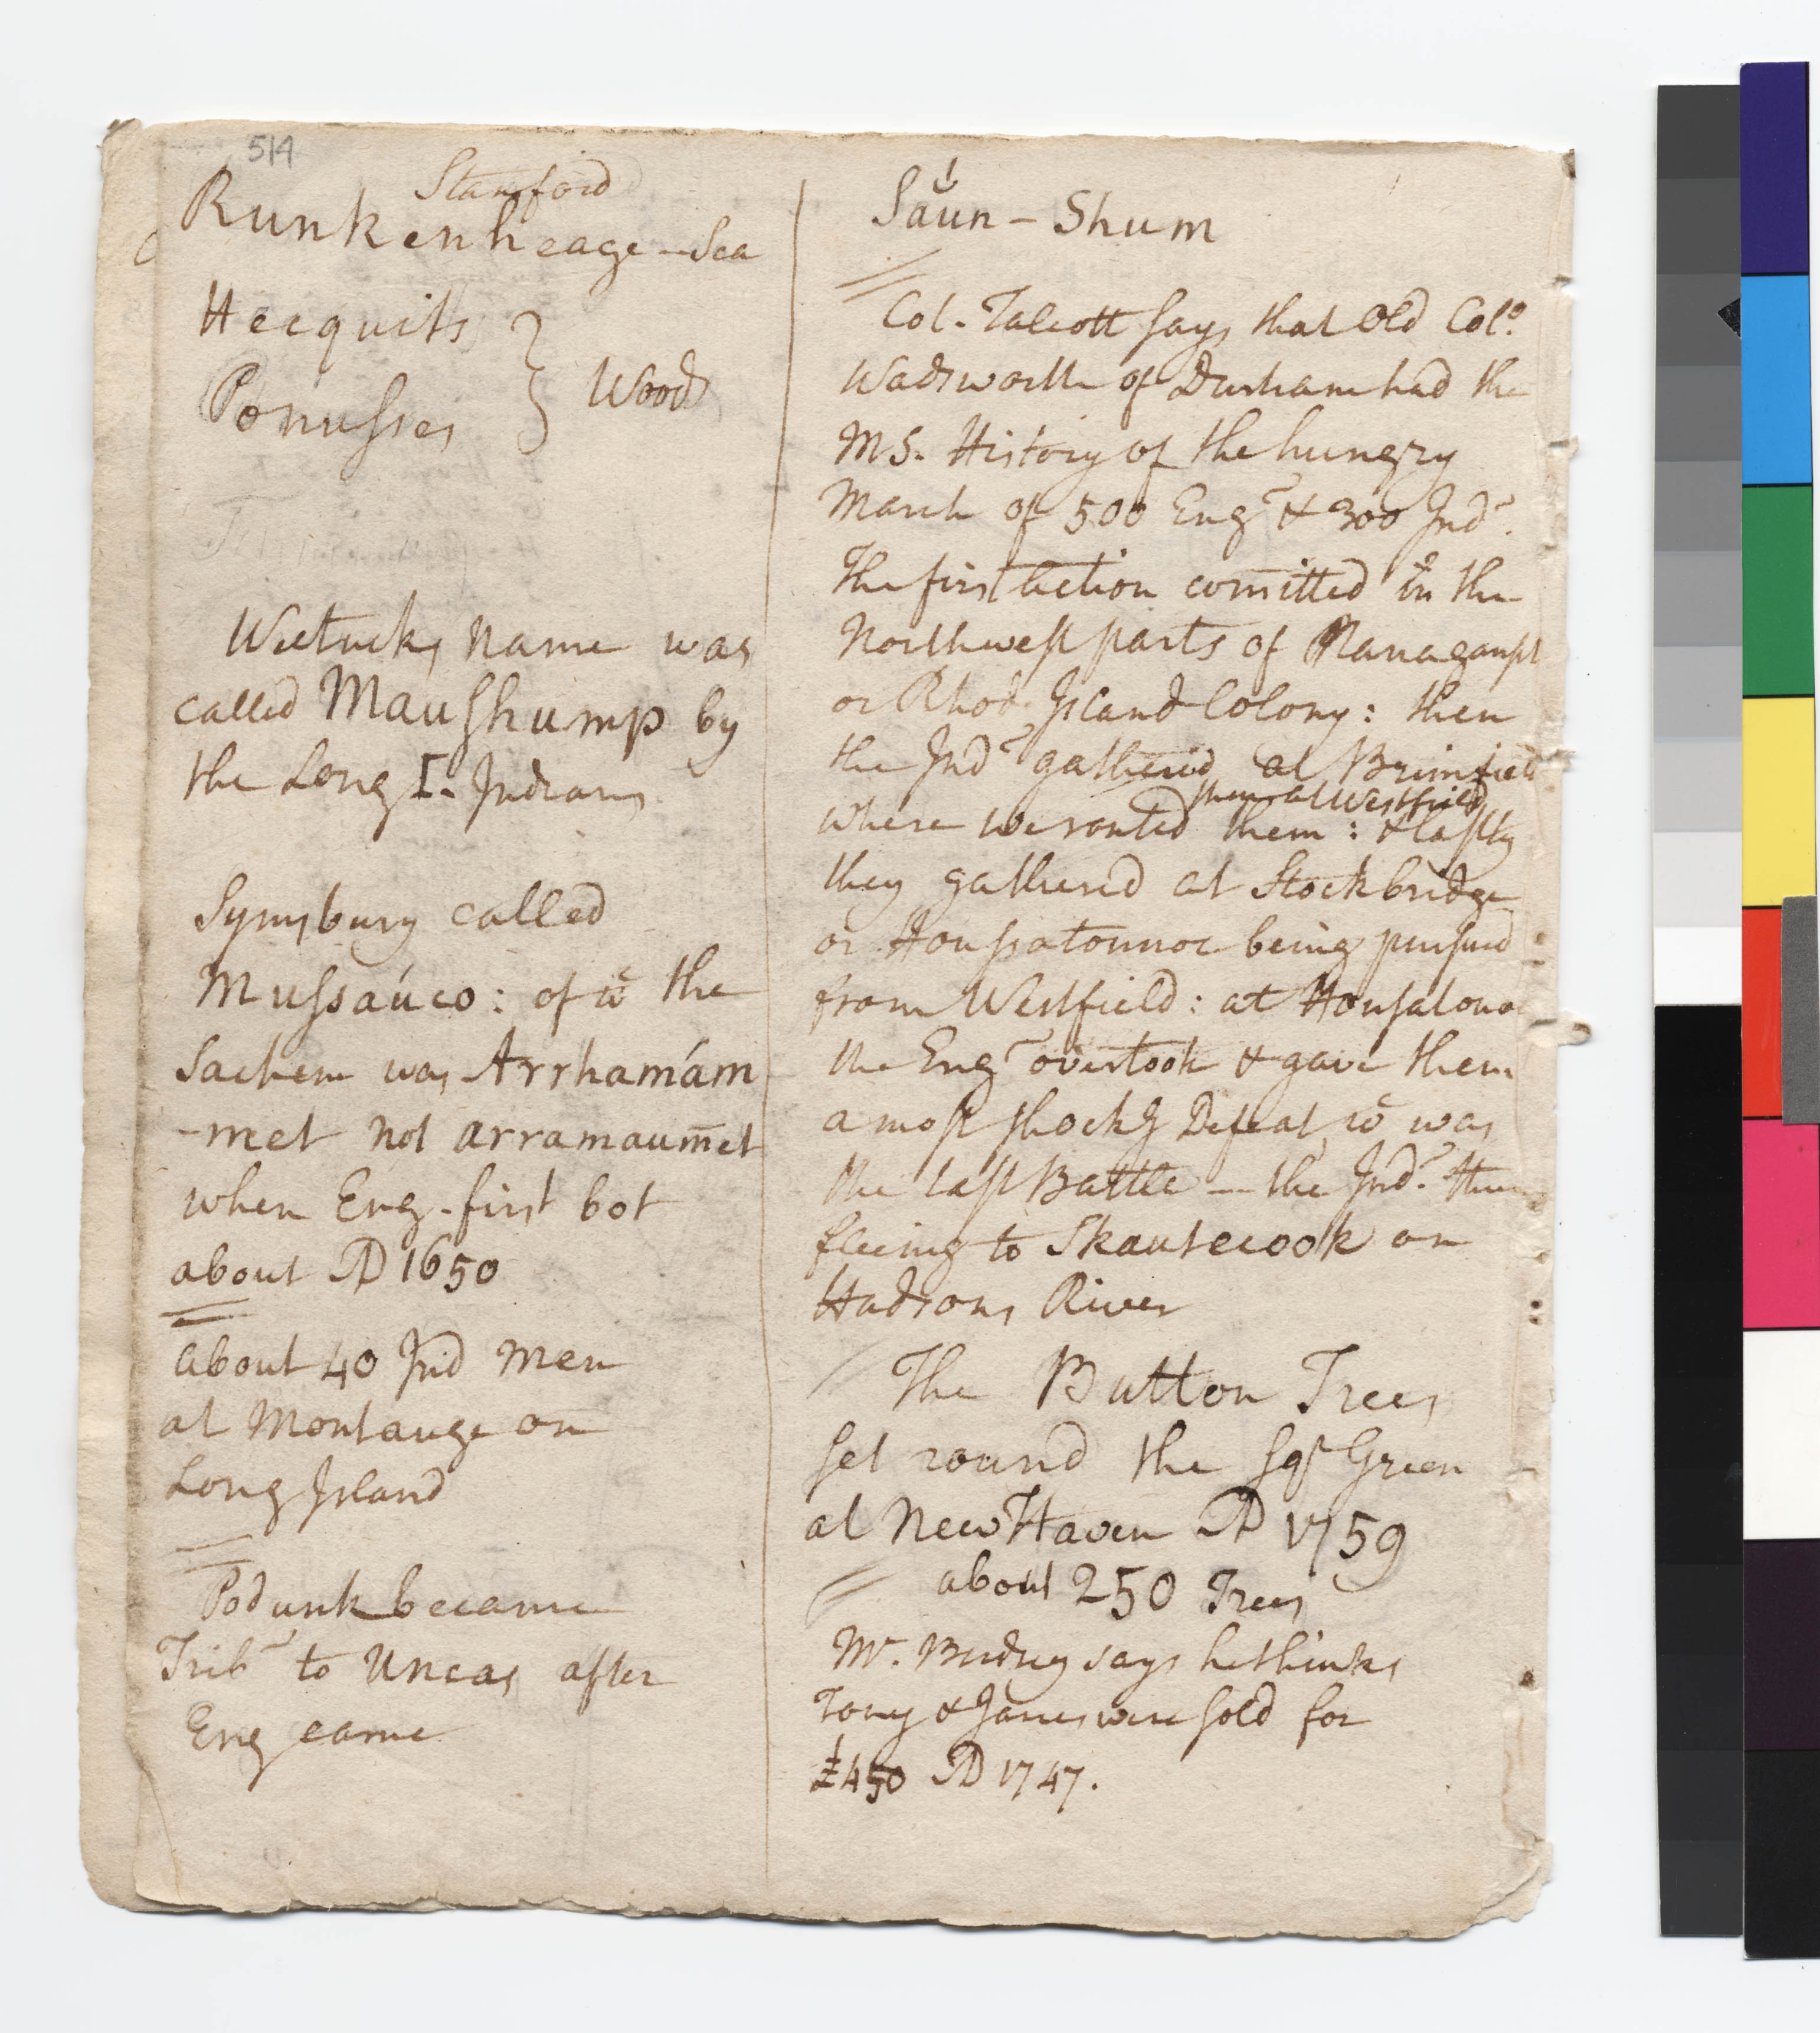 514
Stamford
Runkenheage - Sea
Hecquits
Ponusses } Woods
Weetucks name was
called Maushump by
the Long I. Indians
Symsbury called
Mussáuco: of wc the
Sachem was Arrhamám
-met not arramaum̄et
when Eng. first bot
about AD 1650
about 40 Ind Men
at Montauge on
Long Island
Podunk became
Tribs to Uncas after
Eng came
Saun - Shum
Col. Talcott says that Old Colo.
Wadsworth of Durham had the
MS. History of the hungry
March of 500 Engs & 300 Inds.
The first action com̄itted in the
Northwest parts of
or Rhod. Island Colony: then
the Inds gathered at Brimfield
then at Westfield
where we routed them: & lastly
they gathered at Stockbridge
or Houssatonnoc being pursued
from Westfield: at Housatono
the Engs overtook & gave them
a most shockg Defeat, wc was
the last Battle — the Inds. then
fleeing to Skautecook on
Hudsons River
The Button Trees
set round the sqr Green
at New Haven AD 1759
about 250 Trees
Mr. says he thinks
Tony & were sold for
£450 AD 1747.